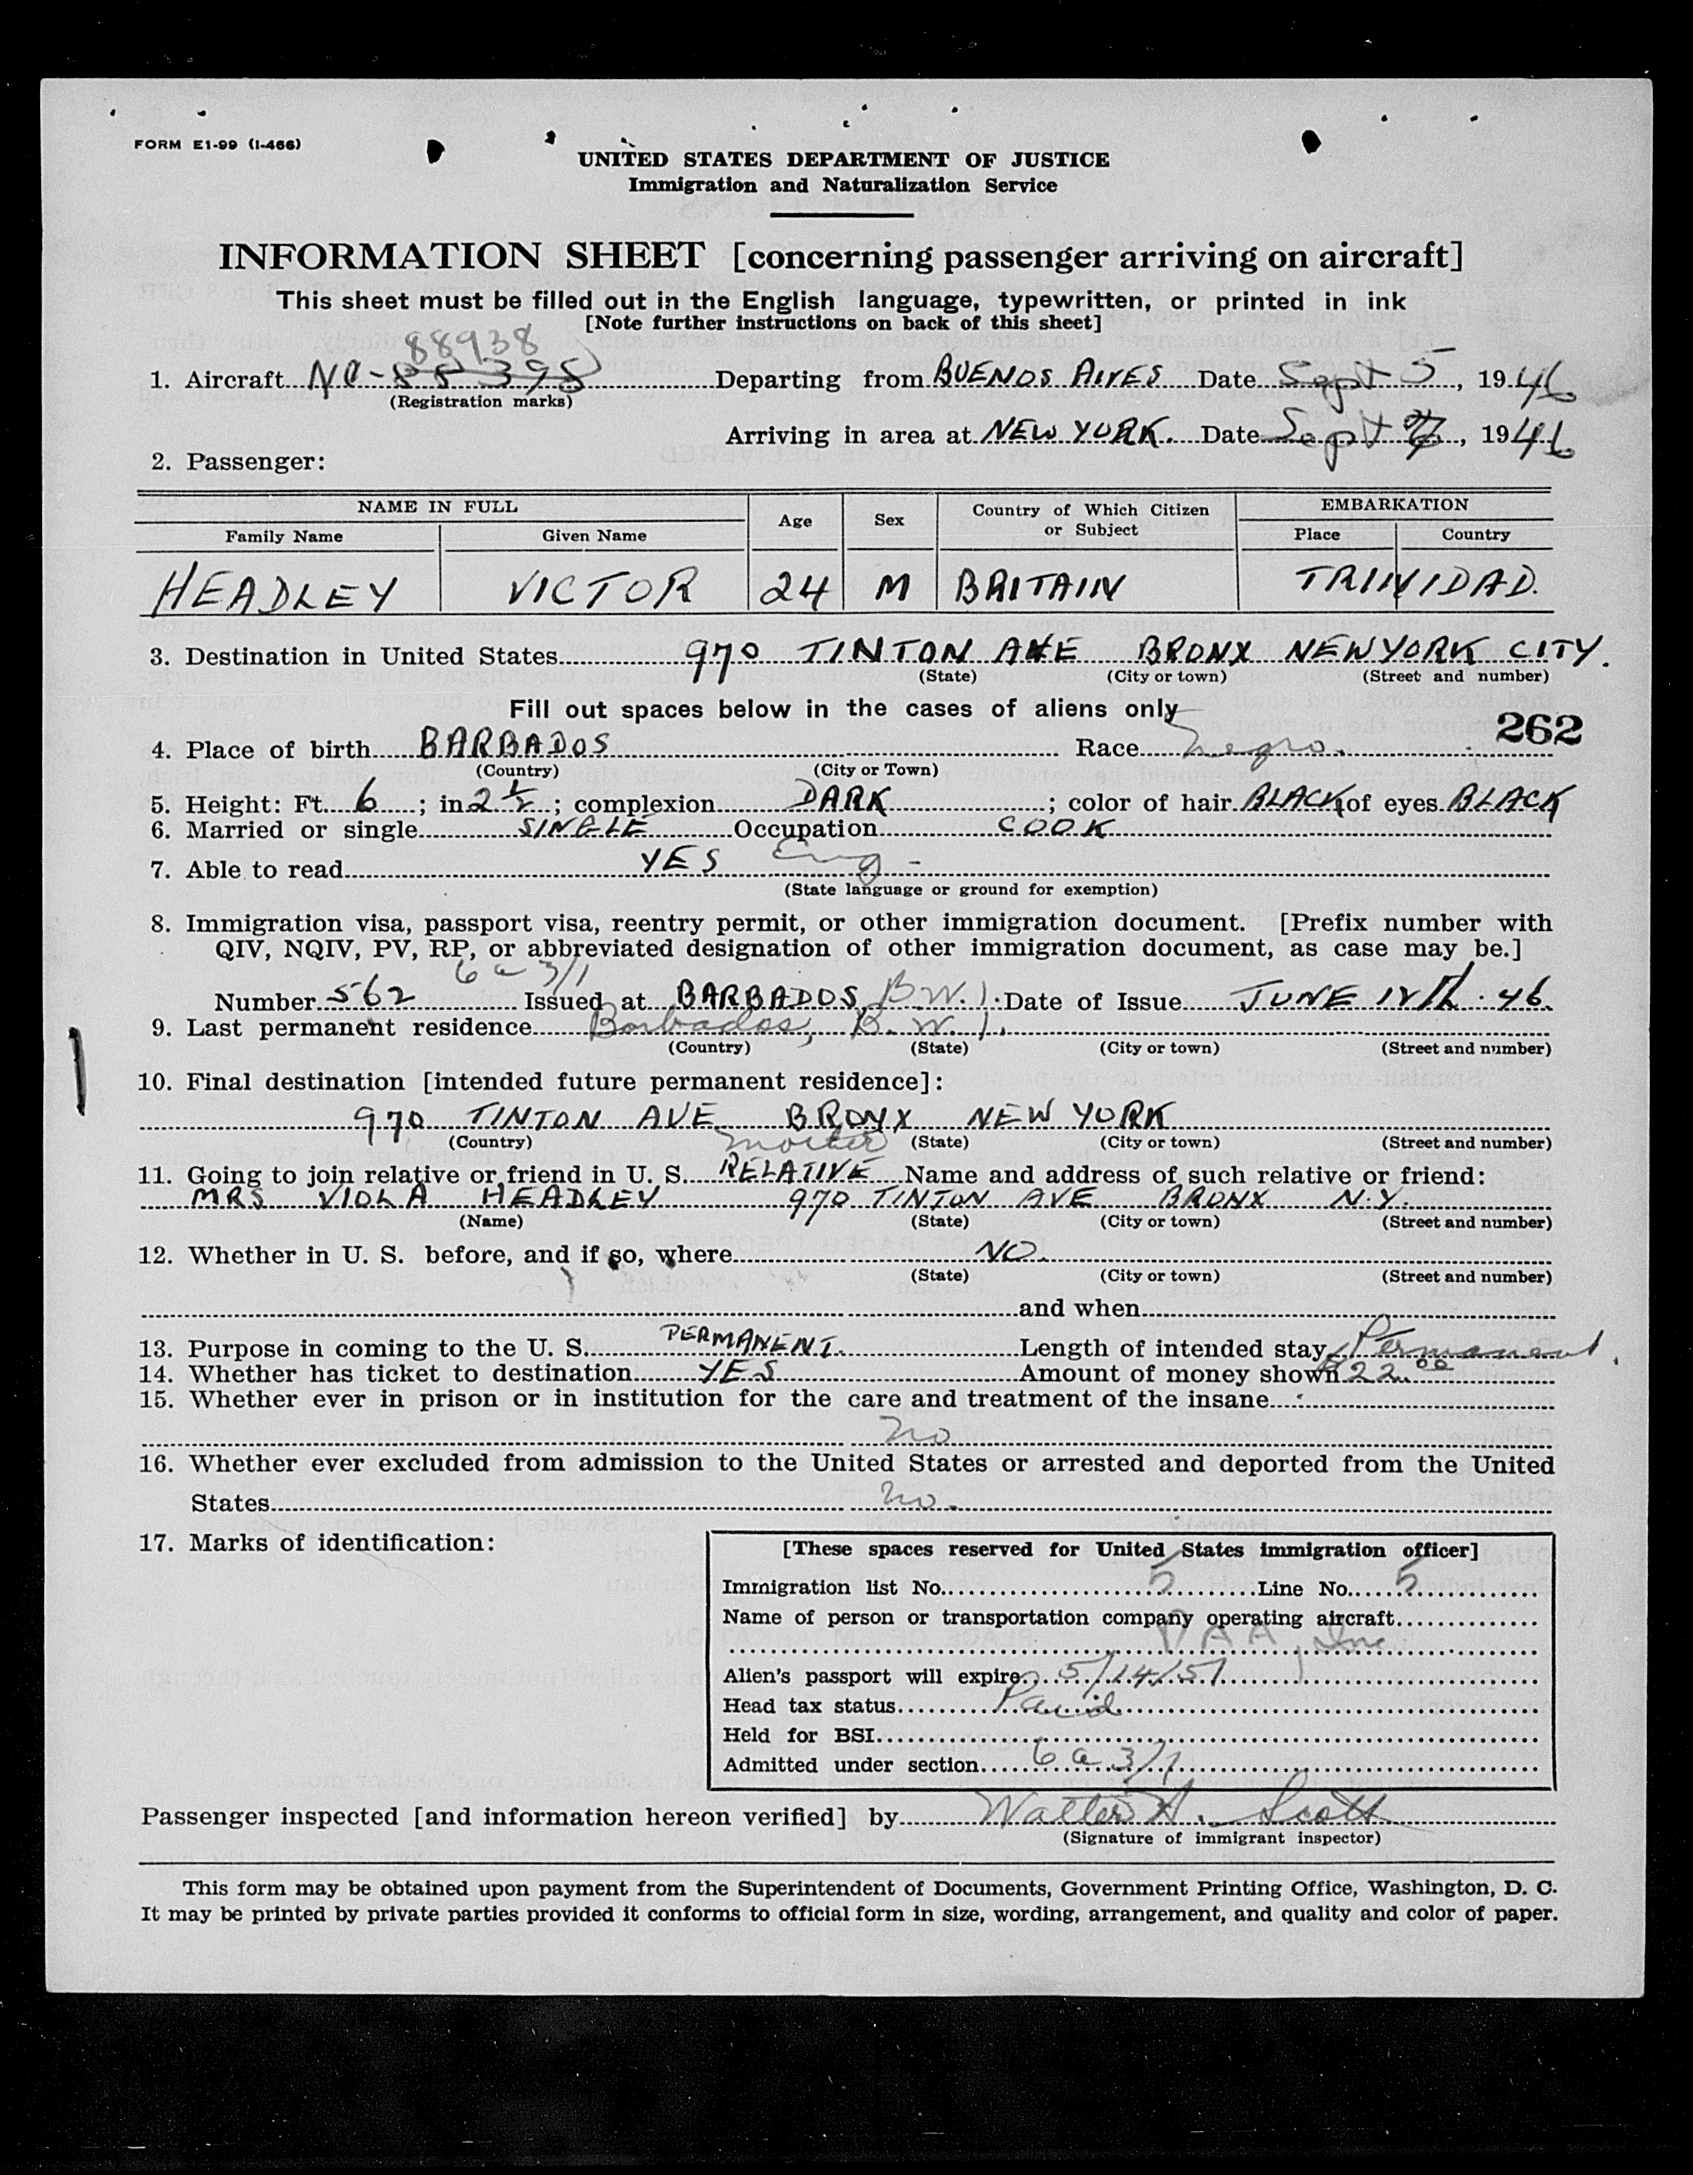 FORM E1-99 (I-466)
UNITED STATES DEPARTMENT OF JUSTICE
Immigration and Naturalization Service
INFORMATION SHEET [concerning passenger arriving on aircraft]
This sheet must be filled out in the English language, typewritten, or printed in ink
[Note further instructions on back of this sheet]
88938
1. Aircraft NC-88395 Departing from BUENOS AIRES Date Sept 5, 1946
(Registration marks)
Arriving in area at NEW YORK. Date Sept, 1946
2. Passenger:
NAME IN FULL Age Sex Country of Which Citizen or Subject EMBARKATION
Family Name Given Name Place Country
HEADLEY VICTOR 24 M BRITAIN TRINIDAD.
3. Destination in United States 970 TINTON AVE BRONX NEW YORK CITY.
(State) (City or town) (Street and number)
Fill out spaces below in the cases of aliens only
262
4. Place of birth BARBADOS Race Negro.
(Country) (City or Town)
5. Height: Ft. 6; in 2 1/2; complexion DARK; color of hair BLACK of eyes BLACK
6. Married or single SINGLE Occupation COOK
7. Able to read YES Eng -
(State language or ground for exemption)
8. Immigration visa, passport visa, reentry permit, or other immigration document. [Prefix number with
QIV, NQIV, PV, RP, or abbreviated designation of other immigration document, as case may be.]
6 a 3/1
Number 562 Issued at BARBADOS, B.W.I. Date of Issue JUNE 18th. 46.
9. Last permanent residence Barbados, B.W.I.
(Country) (State) (City or town) (Street and number)
10. Final destination [intended future permanent residence]:
970 TINTON AVE BRONX NEW YORK
(Country) (State) (City or town) (Street and number)
mother
11. Going to join relative or friend in U. S. RELATIVE Name and address of such relative or friend:
MRS VIOLA HEADLEY 970 TINTON AVE BRONX N.Y.
(Name) (State) (City or town) (Street and number)
12. Whether in U. S. before, and if so, where NO.
(State) (City or town) (Street and number)
and when
13. Purpose in coming to the U. S. PERMANENT. Length of intended stay Permanent.
14. Whether has ticket to destination YES Amount of money shown $22.00
15. Whether ever in prison or in institution for the care and treatment of the insane
no
16. Whether ever excluded from admission to the United States or arrested and deported from the United
States no.
17. Marks of identification:
[These spaces reserved for United States immigration officer]
Immigration list No. 5 Line No. 5
Name of person or transportation company operating aircraft
PAA, Inc
Alien's passport will expire 5/14/51
Head tax status Paid
Held for BSI
Admitted under section 6 a 3/1
Passenger inspected [and information hereon verified] by Walter A. Scott
(Signature of immigrant inspector)
This form may be obtained upon payment from the Superintendent of Documents, Government Printing Office, Washington, D. C.
It may be printed by private parties provided it conforms to official form in size, wording, arrangement, and quality and color of paper.